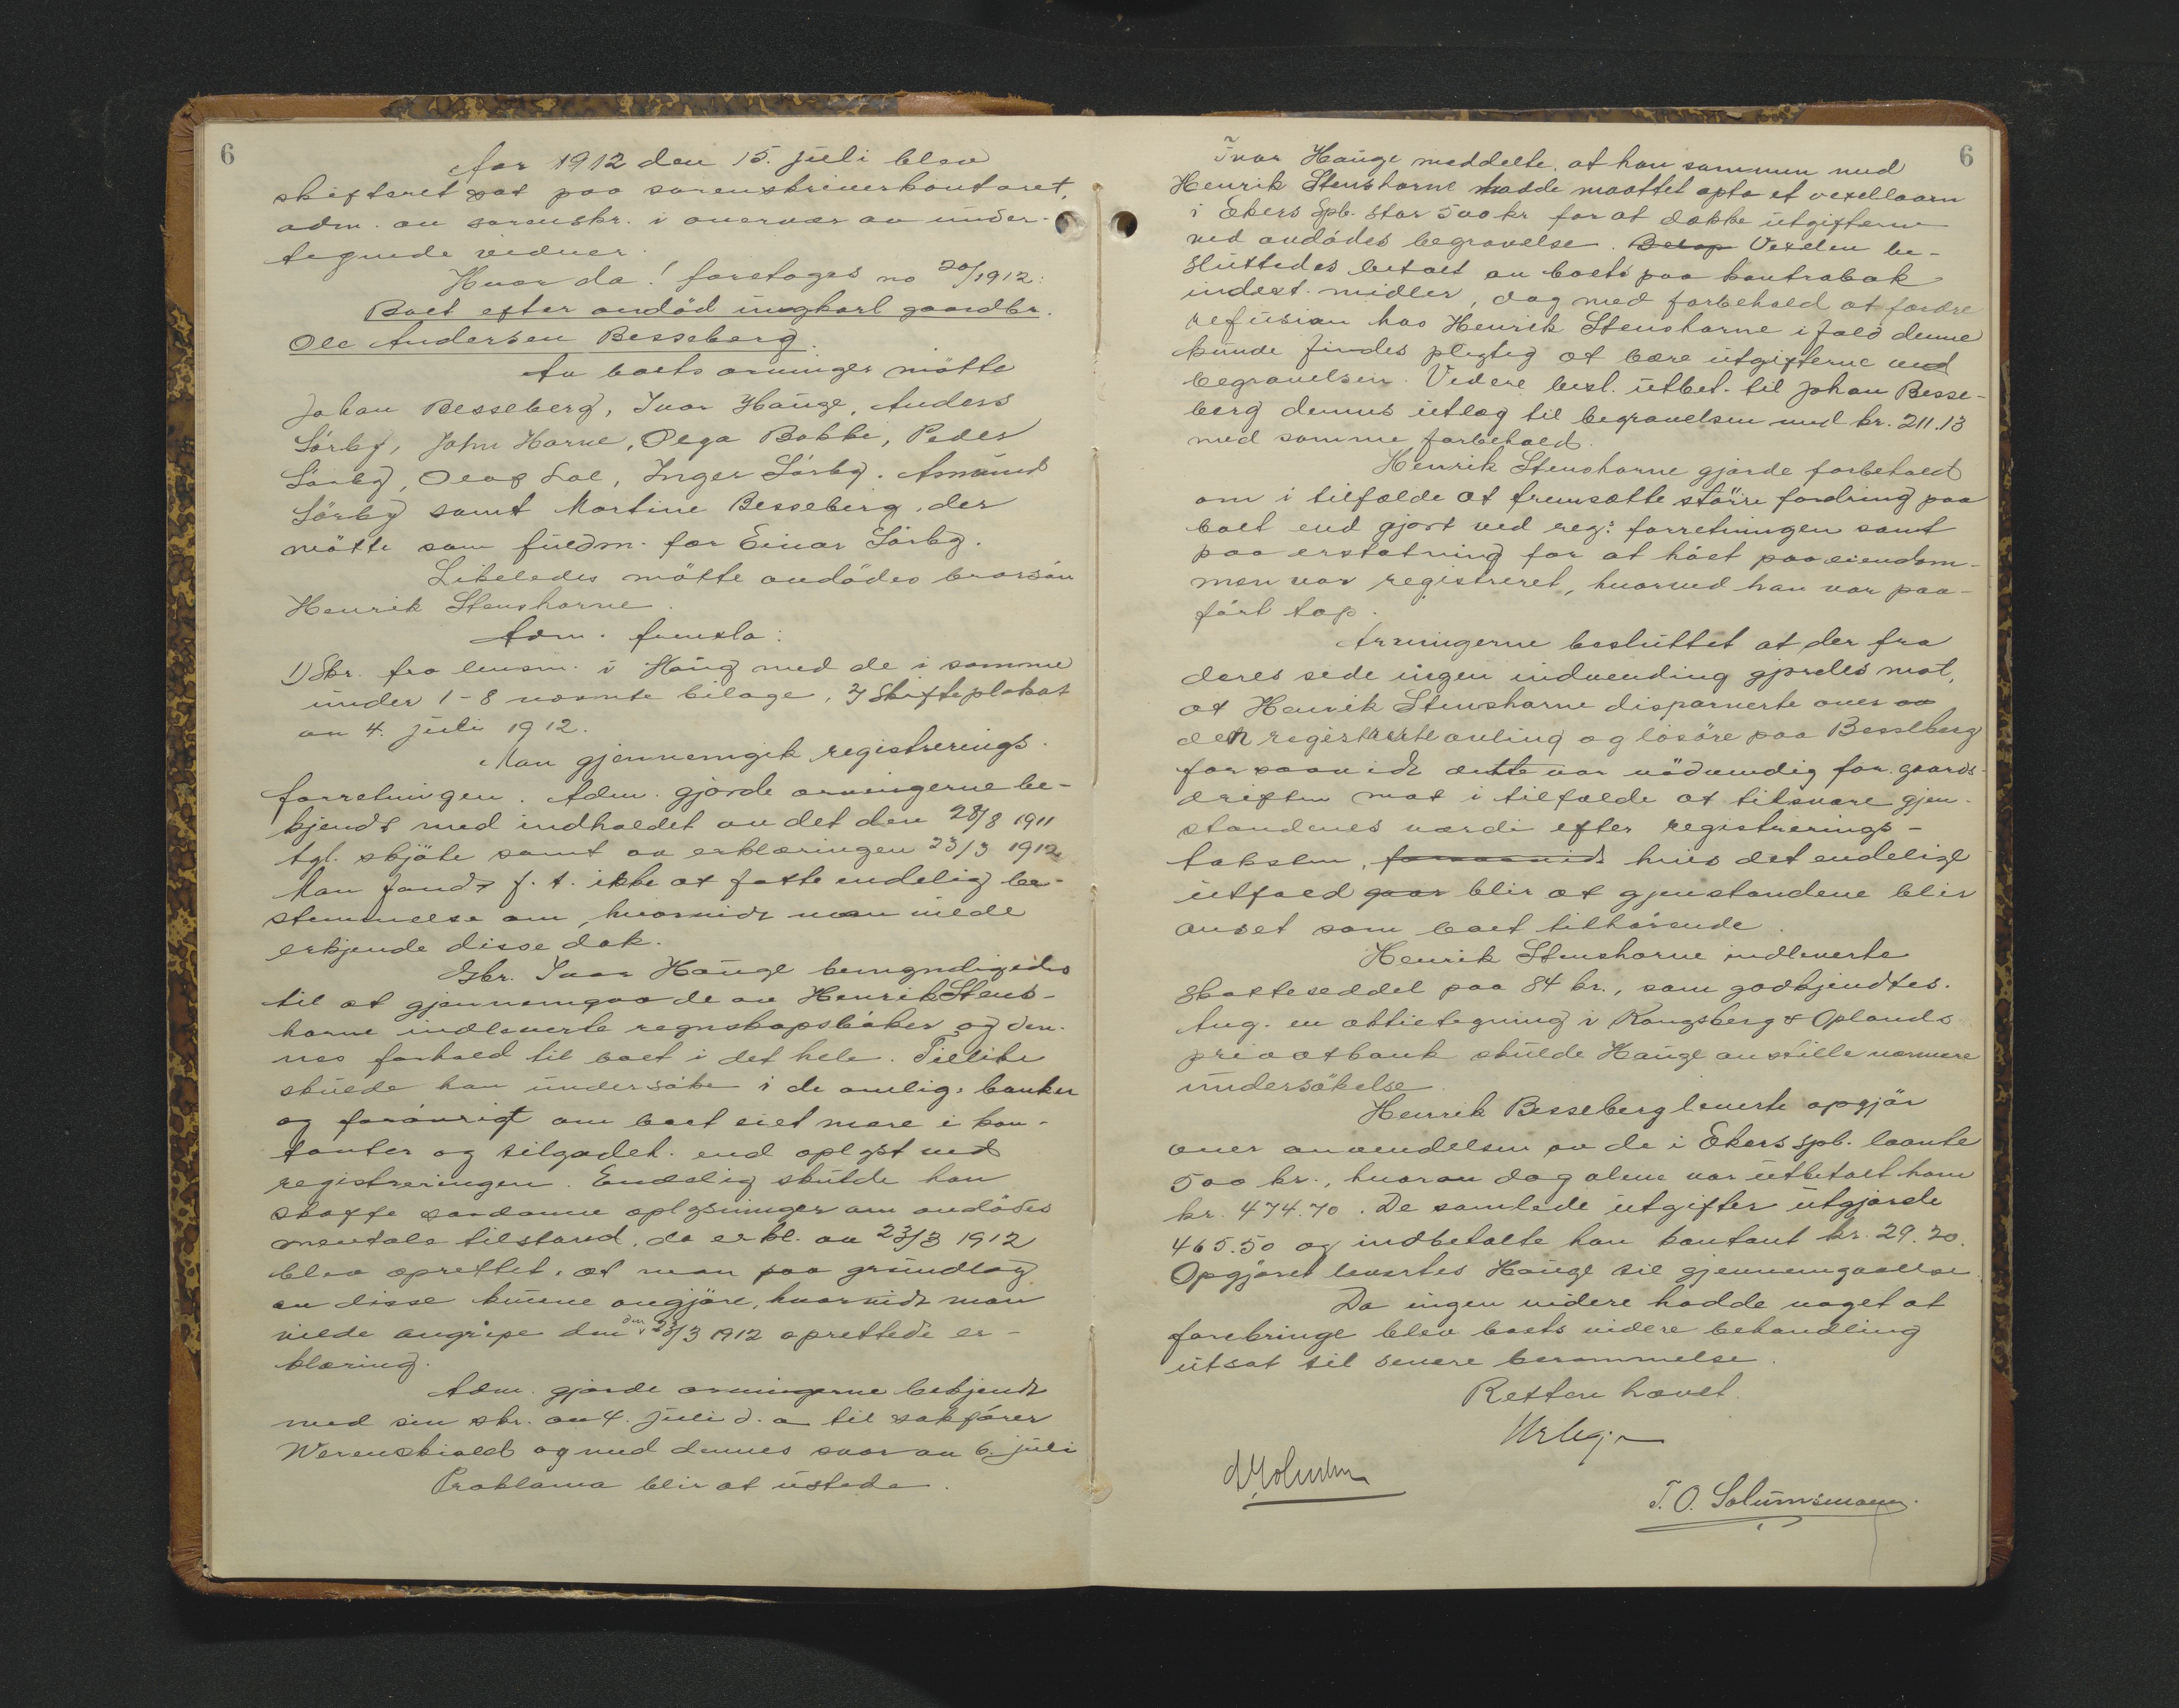 6
Aar 1912 den 15. juli blev
skifteret sat paa sorenskriverkontoret,
adm. av sorenskr. i overvær av under-
tegnede vidner.
Hvorda! foretoges no 20/1912:
Boet efter avdöd ungkarl gaardbr.
Ole Andersen Besseberg.
Av boets arvinger mötte
Johan Besseberg, Ivar Hauge, Anders
Sörby, John Horne, Olga Bakke, Peder
Sörby, Olaf Loe, Inger Sörby, Asmund
Sörby samt Martine Besseberg, der
mötte som fuldm. for Einar Sörby.
Likeledes mötte avdödes brorsön
Henrik Stenshorne.
Adm. fremla:
1) Skr. fra lensm. i Haug med de i samme
under 1-8 nævnte bilage, 2) Skifteplakat
av 4. juli 1912.
Man gjennemgik registrerings-
forretningen. Adm. gjorde arvingerne be-
kjendt med indholdet av det den 28/8 1911
tgl. skjöte samt av erklæringen 23/3 1912
Man fandt f. t. ikke at fatte endelig be-
stemmelse om, hvorvidt man vilde
erkjende disse dok.
Gbr. Ivar Hauge bemyndigedes
til at gjennemgaa de av Henrik Stens-
horne indleverte regnskapsböker og den-
nes forhold til boet i det hele. Tillike
skulde han undersöke i de omlig. banker
og forövrigt om boet eiet mere i kon-
tanter og tilgodeh. end oplyst ved
registreringen. Endelig skulde han
skaffe saadanne oplysninger om avdödes
mentale tilstand, da erkl. av 23/3 1912
blev oprettet, at man paa grundlag
av disse kunne avgjöre, hvorvidt man
vilde angripe den den 23/3 1912 oprettede er-
klæring.
Adm. gjorde arvingerne bekjendt
med sin skr. av 4. juli d. a til sakförer
Werenskiold og med dennes svar av 6. juli
Proklama blir at utstede.
6
Ivar Hauge meddelte, at han sammen med
Henrik Stenshorne hadde maattet opta et vexellaan
i Ekers Spb. stor 500 kr for at dække utgifterne
ved avdödes begravelse. Belöp Vexelen be-
sluttedes betalt av boets paa kontrabok
indest. midler, dog med forbehold at fordre
refusion hos Henrik Stenshorne ifald denne
kunde findes pligtig at bære utgifterne ved
begravelsen. Videre besl. utbet. til Johan Besse-
berg dennes utlæg til begravelsen med kr. 211.13
med samme forbehold.
Henrik Stenshorne gjorde forbehold
om i tilfælde at fremsætte större fordring paa
boet end gjort ved reg: forretningen samt
paa erstatning for at höet paa eiendom-
men var registreret, hvorved han var paa-
fört tap.
Arvingerne besluttet at der fra
deres side ingen indvending gjordes mot,
at Henrik Stenshorne disponerte over av
den registrerte avling og lösöre paa Besseberg
forsaavidt dette var nödvendig for gaards-
driften mot i tilfælde at tilsvare gjen-
standenes værdi efter registrerings-
taksten, forsaavidt hvis det endelige
utfald gaar blir at gjenstandene blir
anset som boet tilhörende.
Henrik Stenshorne indleverte
skatteseddel paa 84 kr., som godkjendtes.
Ang. en aktietegning i Kongsberg & Oplands
privatbank skulde Hauge anstille nærmere
undersökelse.
Henrik Besseberg leverte opgjör
over anvendelsen av de i Ekers spb. laante
500 kr., hvorav dog alene var utbetalt ham
kr. 474.70. De samlede utgifter utgjorde
465.50 og indbetalte han kontant kr. 29.20.
Opgjöret levertes Hauge til gjennemgaaelse.
Da ingen videre hadde noget at
forebringe blev boets videre behandling
utsat til senere berammelse.
Retten hævet.
T. O. Solumsmoen.